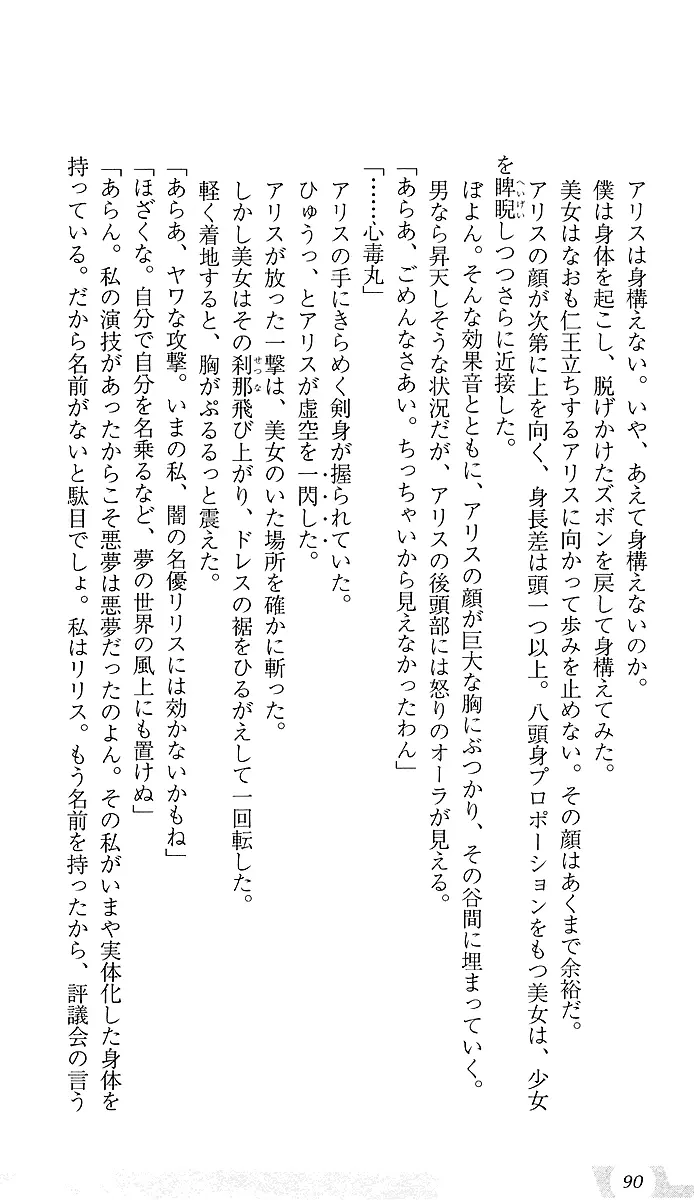 アリスは身構えない。いや、あえて身構えないのか。
僕は身体を起こし、脱げかけたズボンを戻して身構えてみた。
美女はなおも仁王立ちするアリスに向かって歩みを止めない。その顔はあくまで余裕だ。
アリスの顔が次第に上を向く、身長差は頭一つ以上。八頭身プロポーションをもつ美女は、少女
を睥睨しつつさらに近接した。
へいげい
ぼよん。そんな効果音とともに、アリスの顔が巨大な胸にぶつかり、その谷間に埋まっていく。
男なら昇天しそうな状況だが、アリスの後頭部には怒りのオーラが見える。
「あらあ、ごめんなさあい。ちっちゃいから見えなかったわん」
「……心毒丸」
アリスの手にきらめく剣身が握られていた。
ひゅうっ、とアリスが虚空を一閃した。
アリスが放った一撃は、美女のいた場所を確かに斬った。
しかし美女はその刹那飛び上がり、ドレスの裾をひるがえして一回転した。
せつな
軽く着地すると、胸がぷるるっと震えた。
「あらあ、ヤワな攻撃。いまの私、闇の名優リリスには効かないかもね」
「ほざくな。自分で自分を名乗るなど、夢の世界の風上にも置けぬ」
「あらん。私の演技があったからこそ悪夢は悪夢だったのよん。その私がいまや実体化した身体を
持っている。だから名前がないと駄目でしょ。私はリリス。もう名前を持ったから、評議会の言う
90